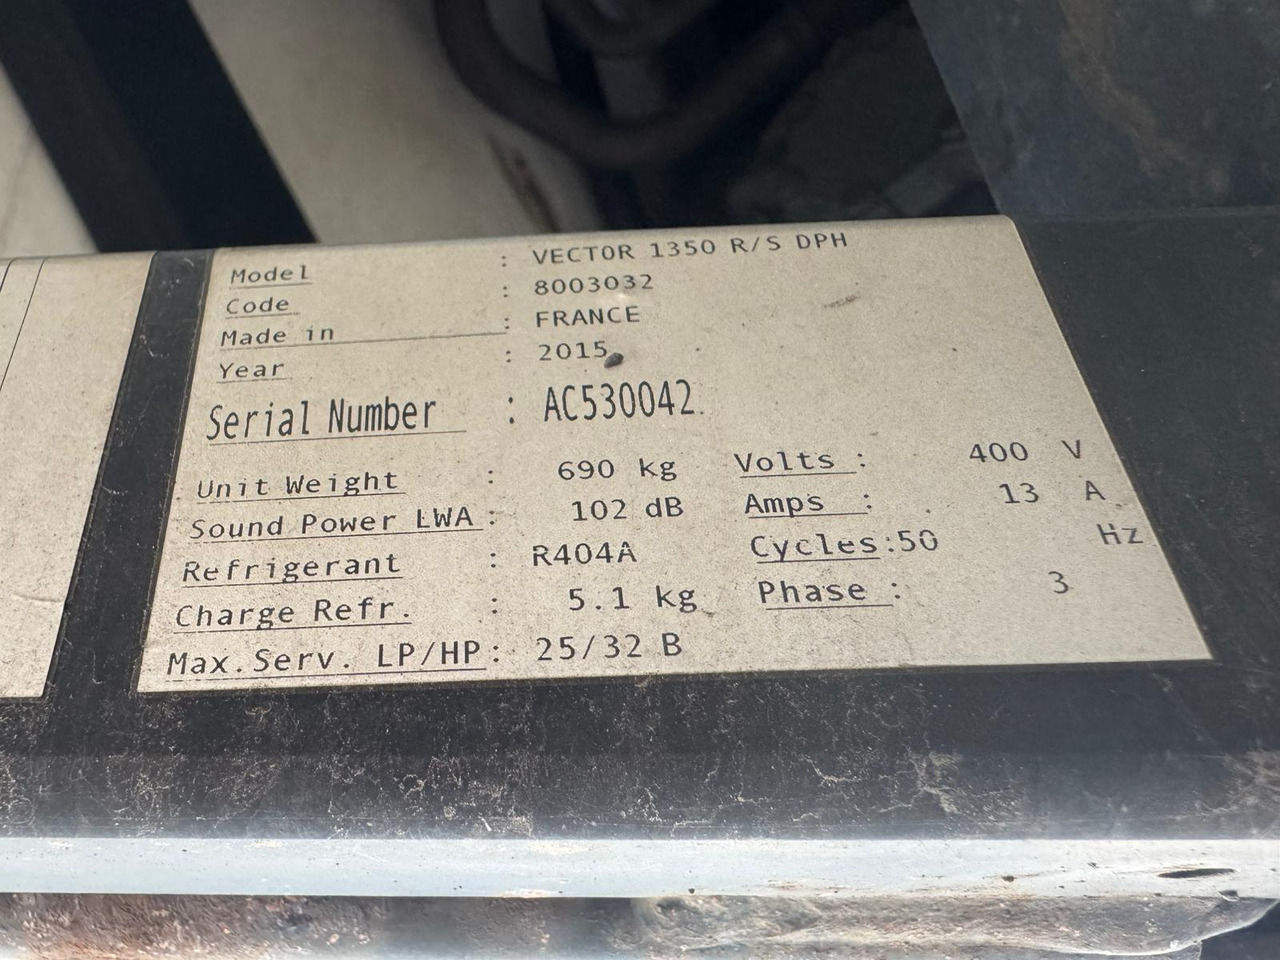 Model : VECTOR 1350 R/S DPH
Code : 8003032
Made in : FRANCE
Year : 2015
Serial Number : AC530042
Unit Weight : 690 kg Volts : 400 V
Sound Power LWA : 102 dB Amps : 13 A
Refrigerant : R404A Cycles:50 Hz
Charge Refr. : 5.1 kg Phase : 3
Max.Serv. LP/HP: 25/32 B